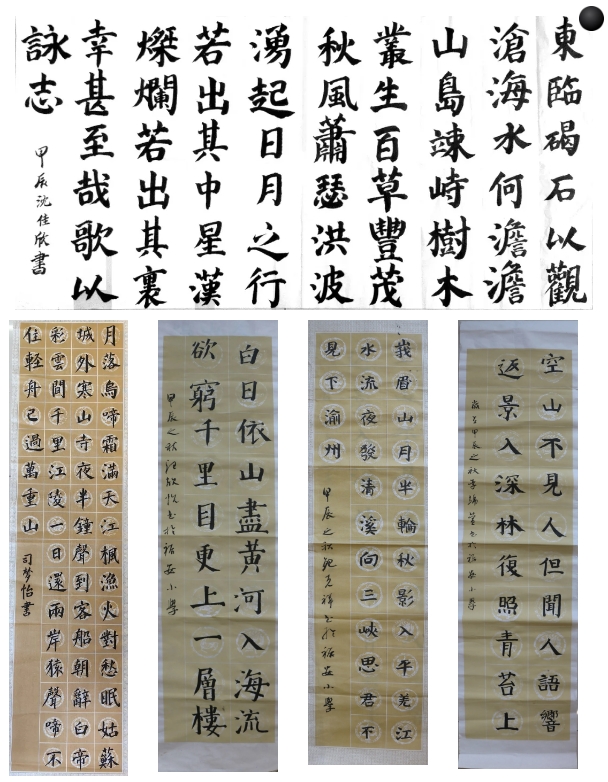 東臨碣石以觀
滄海水何澹澹
山島竦峙樹木
叢生百草豐茂
秋風蕭瑟洪波
湧起日月之行
若出其中星漢
燦爛若出其裏
幸甚至哉歌以
詠志
甲辰沈佳欣書
月落烏啼霜滿天江楓漁火對愁眠姑蘇
城外寒山寺夜半鐘聲到客船朝辭白帝
彩雲間千里江陵一日還兩岸猿聲啼不
住輕舟已過萬重山
司梦怡書
白日依山盡黄河入海流
欲窮千里目更上一層樓
甲辰之秋汪欣悦书於裕安小學
峩眉山月半輪秋影入平羌江
水流夜發清溪向三峽思君不
見下渝州
甲辰之秋书於裕安小學
空山不見人但聞人語響
返景入深林復照青苔上
甲辰之秋李瑞萱书於裕安小學